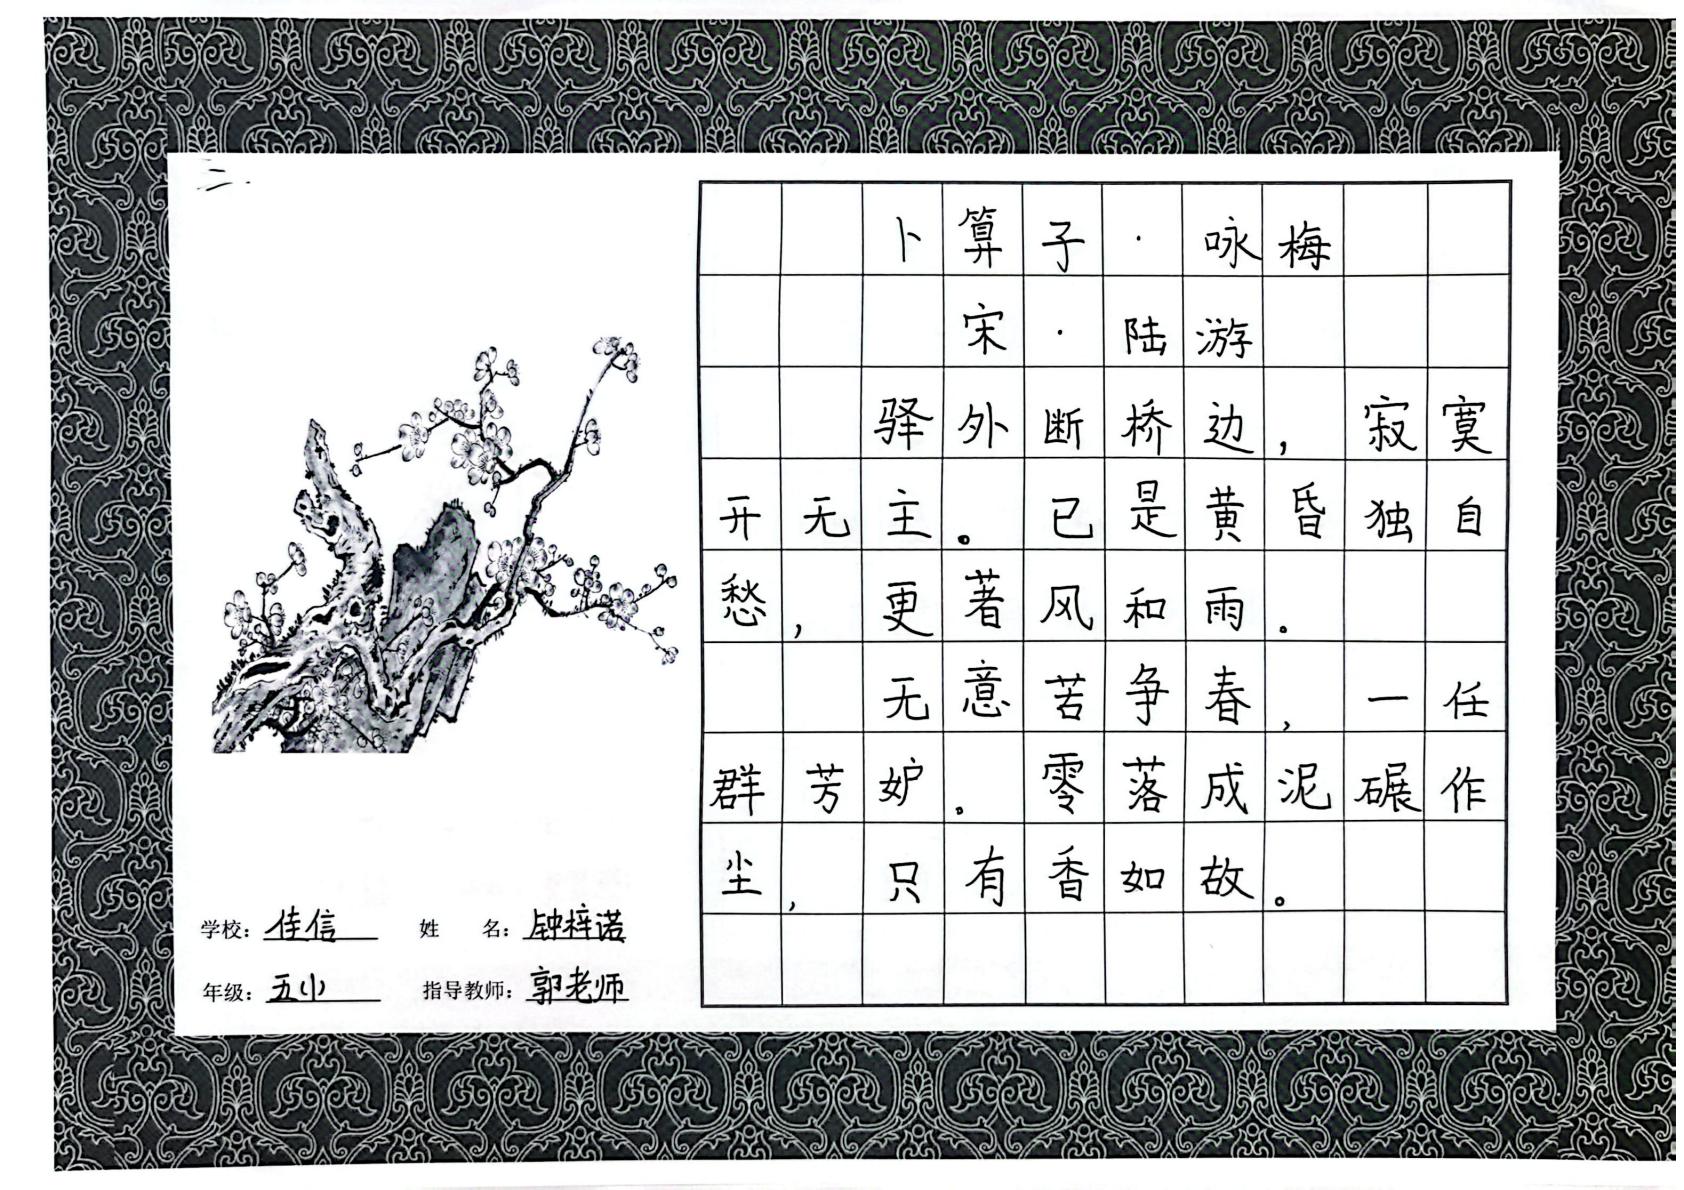 三.
卜算子·咏梅
宋·陆游
驿外断桥边，寂寞
开无主。已是黄昏独自
愁，更著风和雨。
无意苦争春，一任
群芳妒。零落成泥碾作
尘，只有香如故。
学校：佳信 姓 名：钟梓诺
年级：五小 指导教师：郭老师